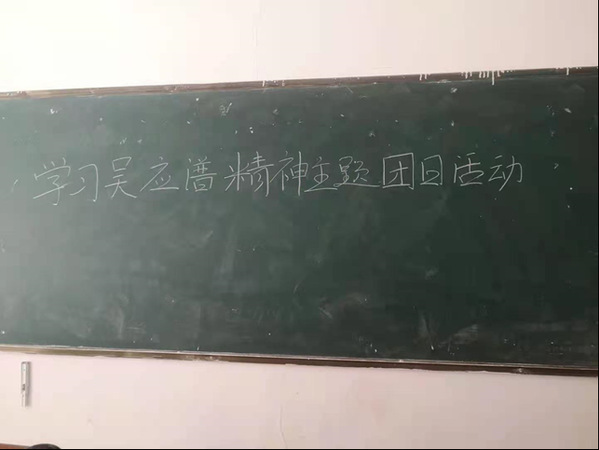 学习吴应谱精神主题团日活动